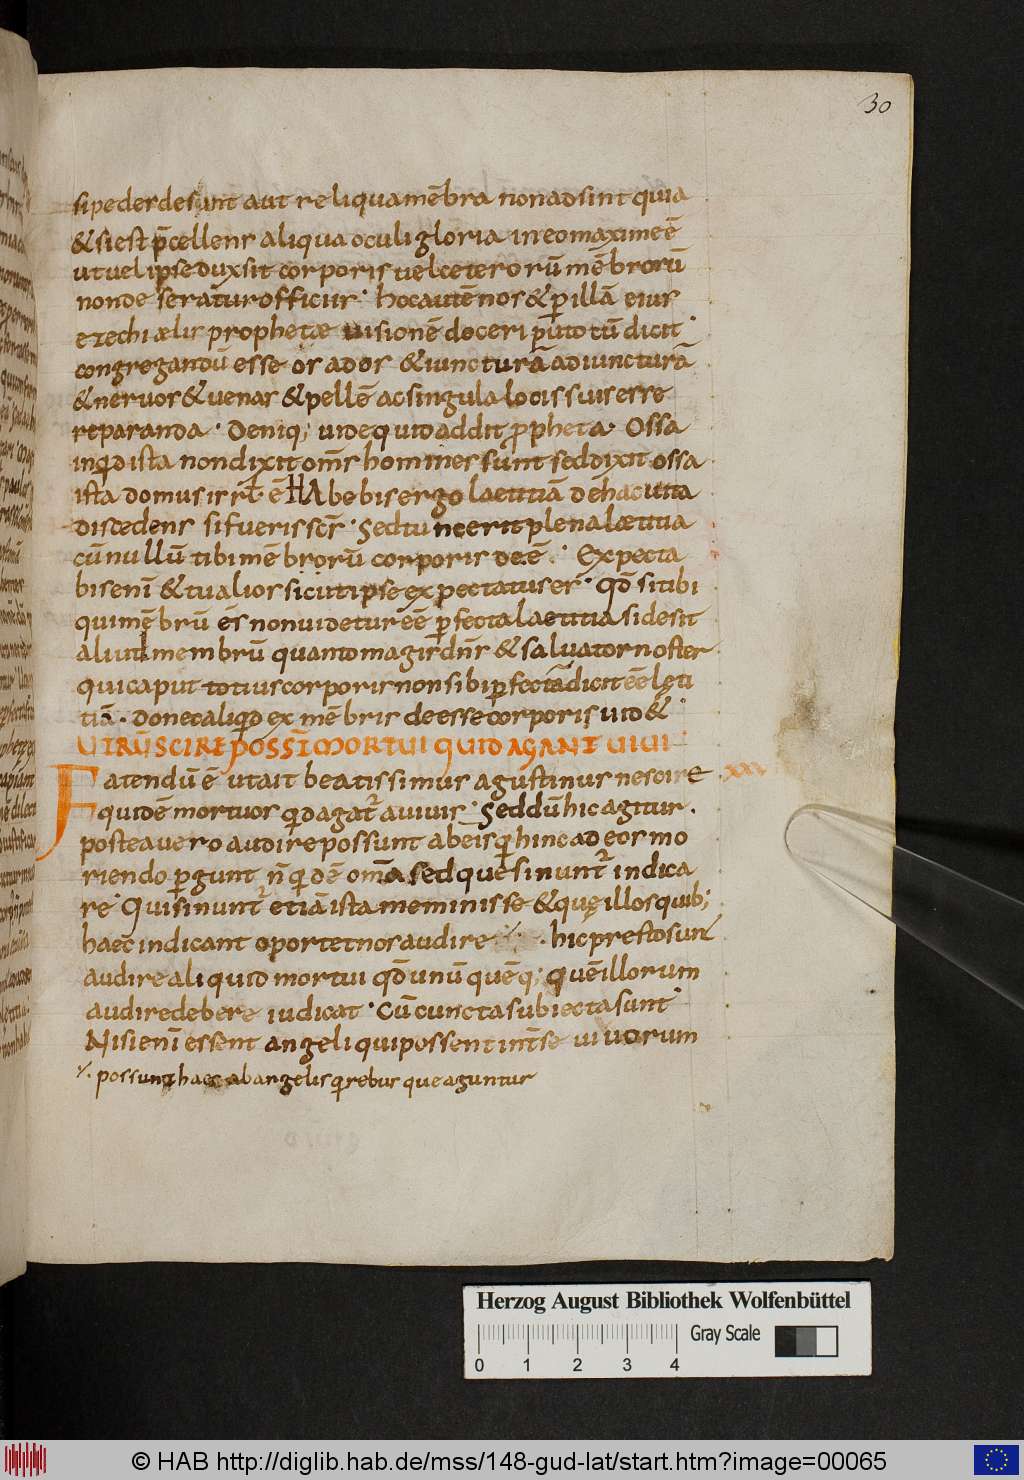 30
si pedes desunt aut reliqua mēbra non adsint quia
& si est p̄cellens aliqua oculi gloria in eo maxime ē
ut uel ipse dux sit corporis uel ceterorū mēbrorū
non deseratur officiis · hoc autē nos & p illā eius
ezechiaelis prophetae uisionē doceri puto cū dicit ·
congregandū esse os ad os & iuncturā ad iuncturā
& neruos & uenas & pellē ac singula locis suis esse
reparanda · Deniq; uide quid addit ppheta · Ossa
inqd ista non dixit om̄s homines sunt sed dixit ossa
ista domus isrł · ē HAbebis ergo laetitiā de hac uita
discedens si fueris sc̄s · Sed tunc erit plena laetitia
cū nullū tibi mēbrorū corporis deē · Expecta
bis enī & tu alios sicut ipse expectatus es · qd̄ si tibi
qui mēbrū es non uidetur eē pfecta laetitia si desit
aliut membrū quanto magis dn̄s & saluator noster
qui caput totius corporis non sibi pfectā dicit eē lęti
tiā · donec aliqd ex mēbris deesse corporis uid& ·
UTRŪ SCIRE POSSĪ MORTUI QUID AGANT UIUI
Fatendū ē ut ait beatissimus agustinus nescire xxx
quidē mortuos qd agat̄ a uiuis · Sed dū hic agitur .
postea uero audire possunt ab eis q hinc ad eos mo
riendo pgunt n̄ qdē om̄a sed que sinunt̄ indica
re · Qui sinunt̄ etiā ista meminisse & quę illos quib;
haec indicant oportet nos audire ·/· · hic prestosunt
audire aliquid mortui qd̄ unū quēq; quē illorum
audire debere iudicat · Cū cuncta subiecta sunt
Nisi enī essent angeli qui possent int̄se uiuorum
·/· possunt haec ab angelis q rebus que aguntur
Herzog August Bibliothek Wolfenbüttel
Gray Scale
0 1 2 3 4
© HAB http://diglib.hab.de/mss/148-gud-lat/start.htm?image=00065